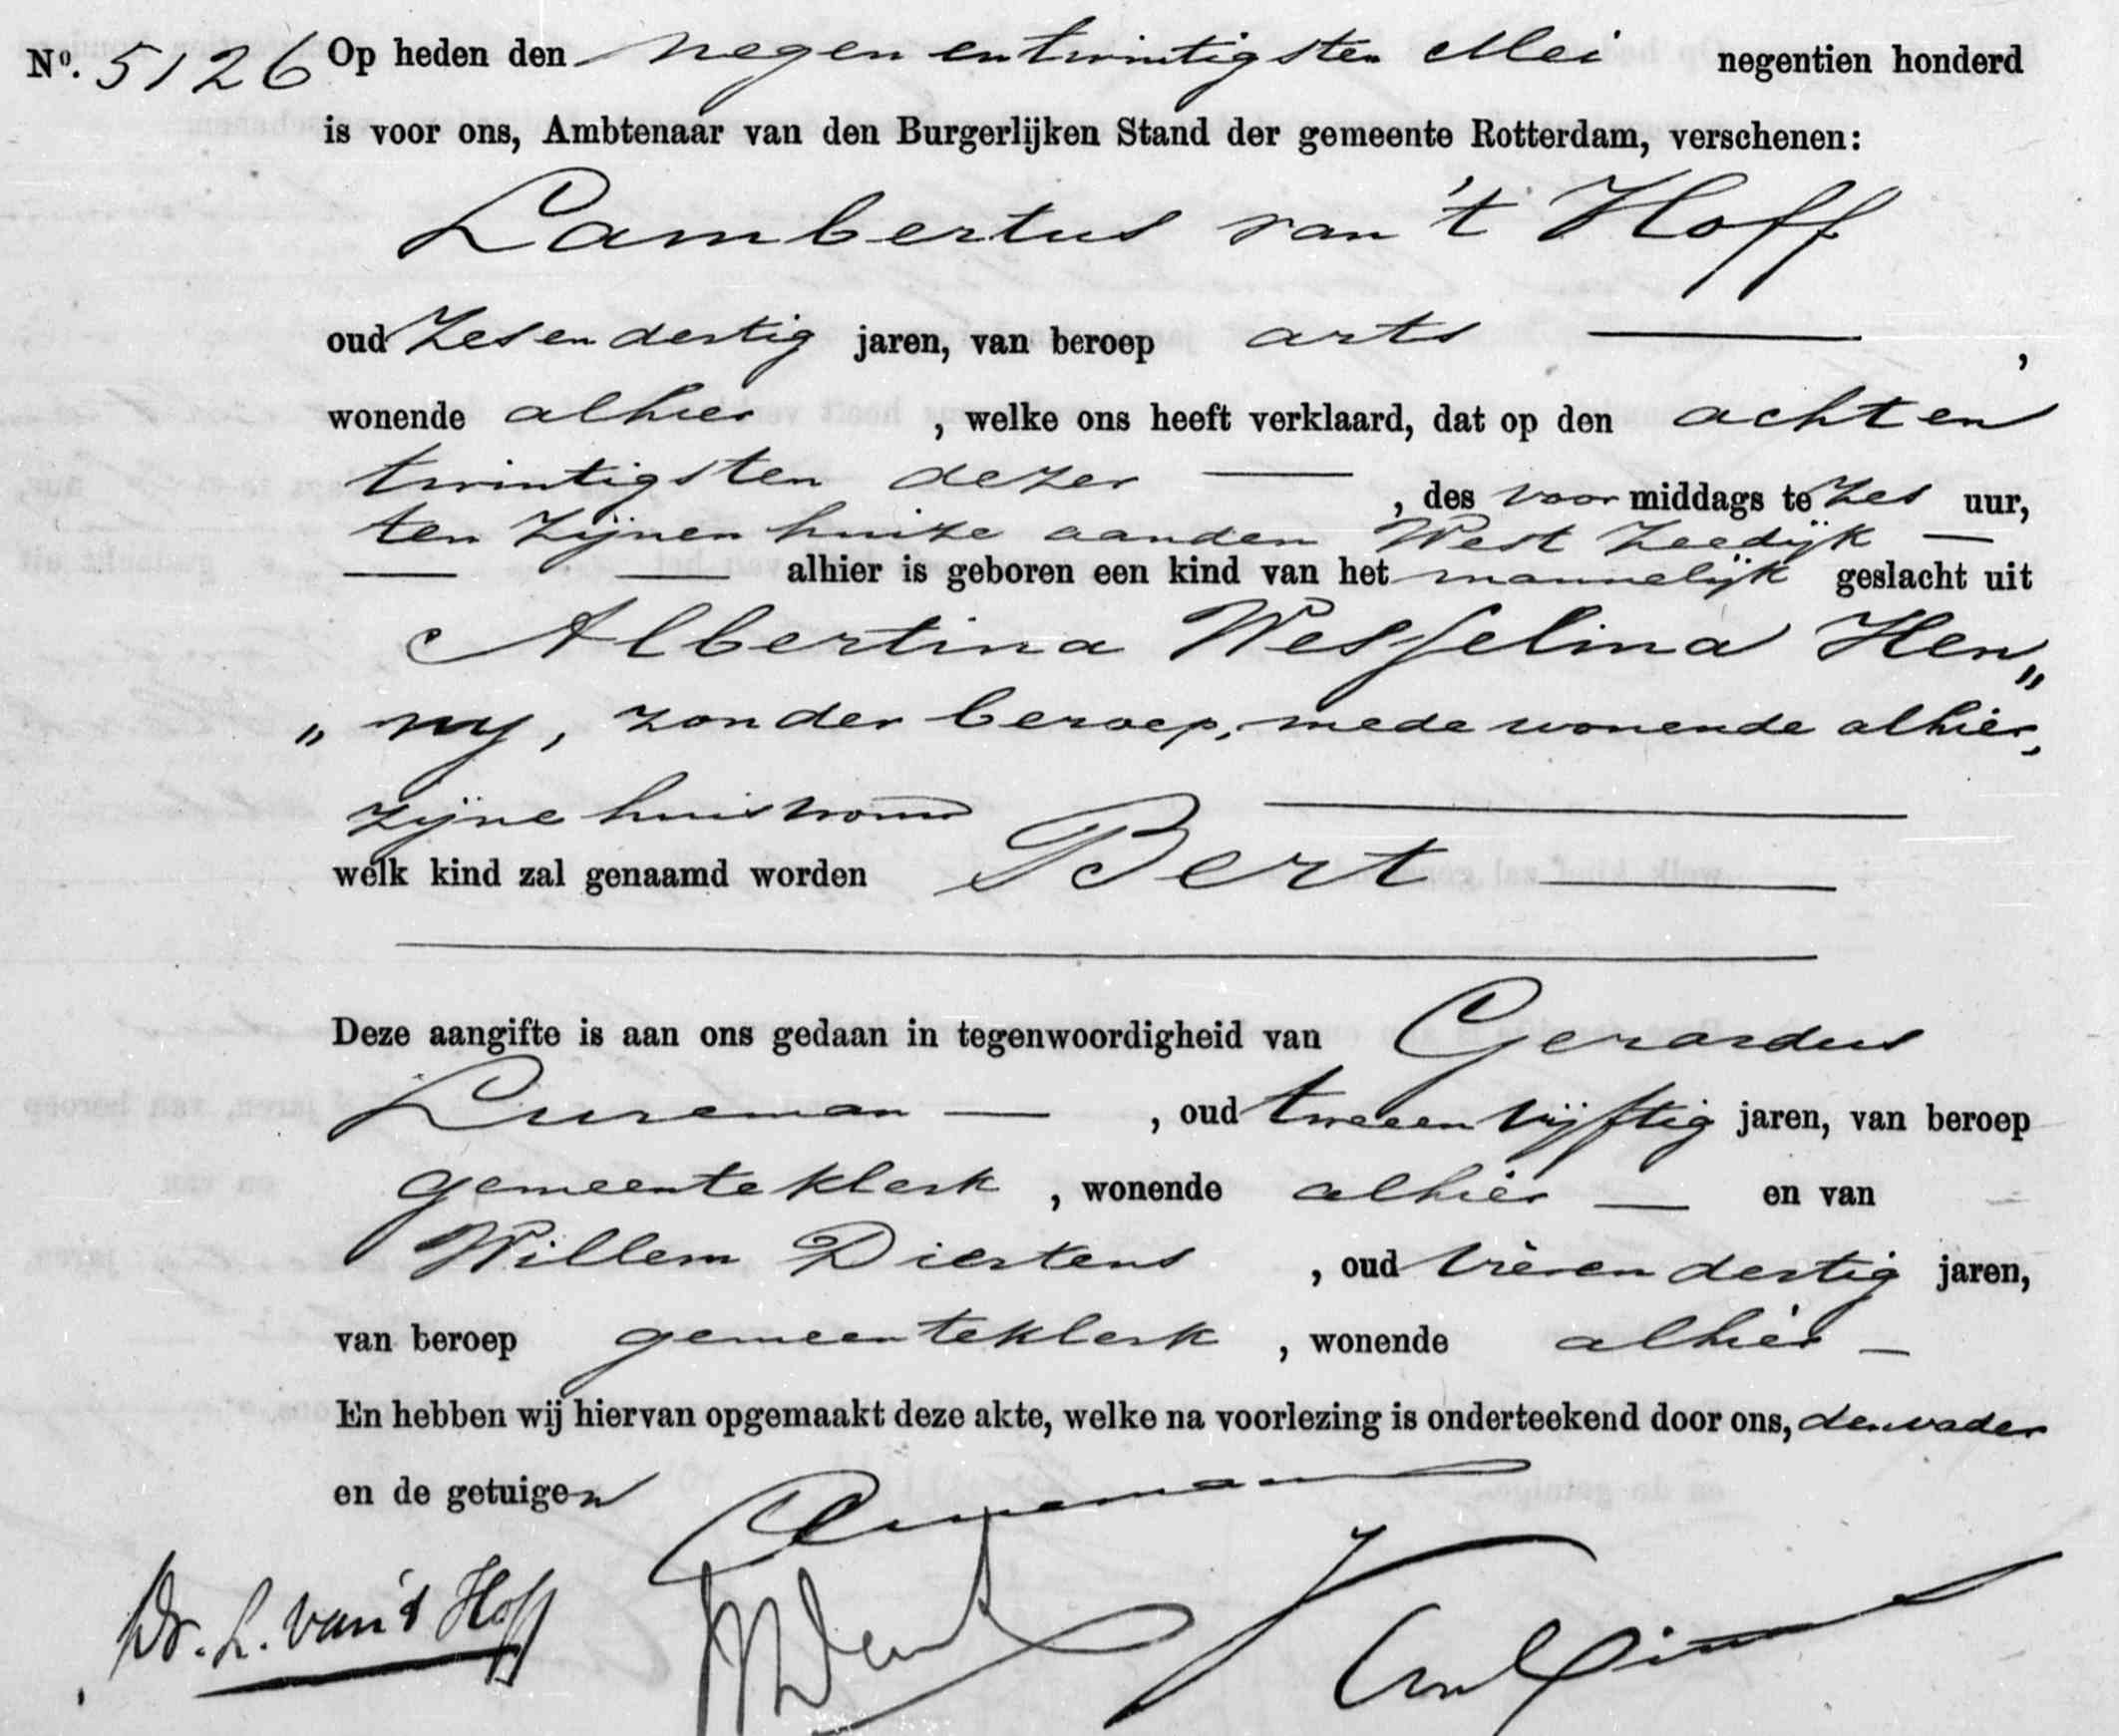 Nº. 5126 Op heden den negen en twintigsten Mei negentien honderd
is voor ons, Ambtenaar van den Burgerlijken Stand der gemeente Rotterdam, verschenen:
Lambertus van 't Hoff
oud zes en dertig jaren, van beroep arts ,
wonende alhier , welke ons heeft verklaard, dat op den acht en
twintigsten dezer , des voor middags te zes uur,
ten zijnen huize aan den West Zeedijk
alhier is geboren een kind van het mannelijk geslacht uit
Albertina Wesselina Hen„
„ ny, zonder beroep, mede wonende alhier,
zijne huisvrouw
welk kind zal genaamd worden Bert
Deze aangifte is aan ons gedaan in tegenwoordigheid van Gerardus
Lureman , oud twee en vijftig jaren, van beroep
gemeenteklerk , wonende alhier en van
Willem Diertens , oud vier en dertig jaren,
van beroep gemeenteklerk , wonende alhier
En hebben wij hiervan opgemaakt deze akte, welke na voorlezing is onderteekend door ons, den vader
en de getuigen
Dr. L. van 't Hoff